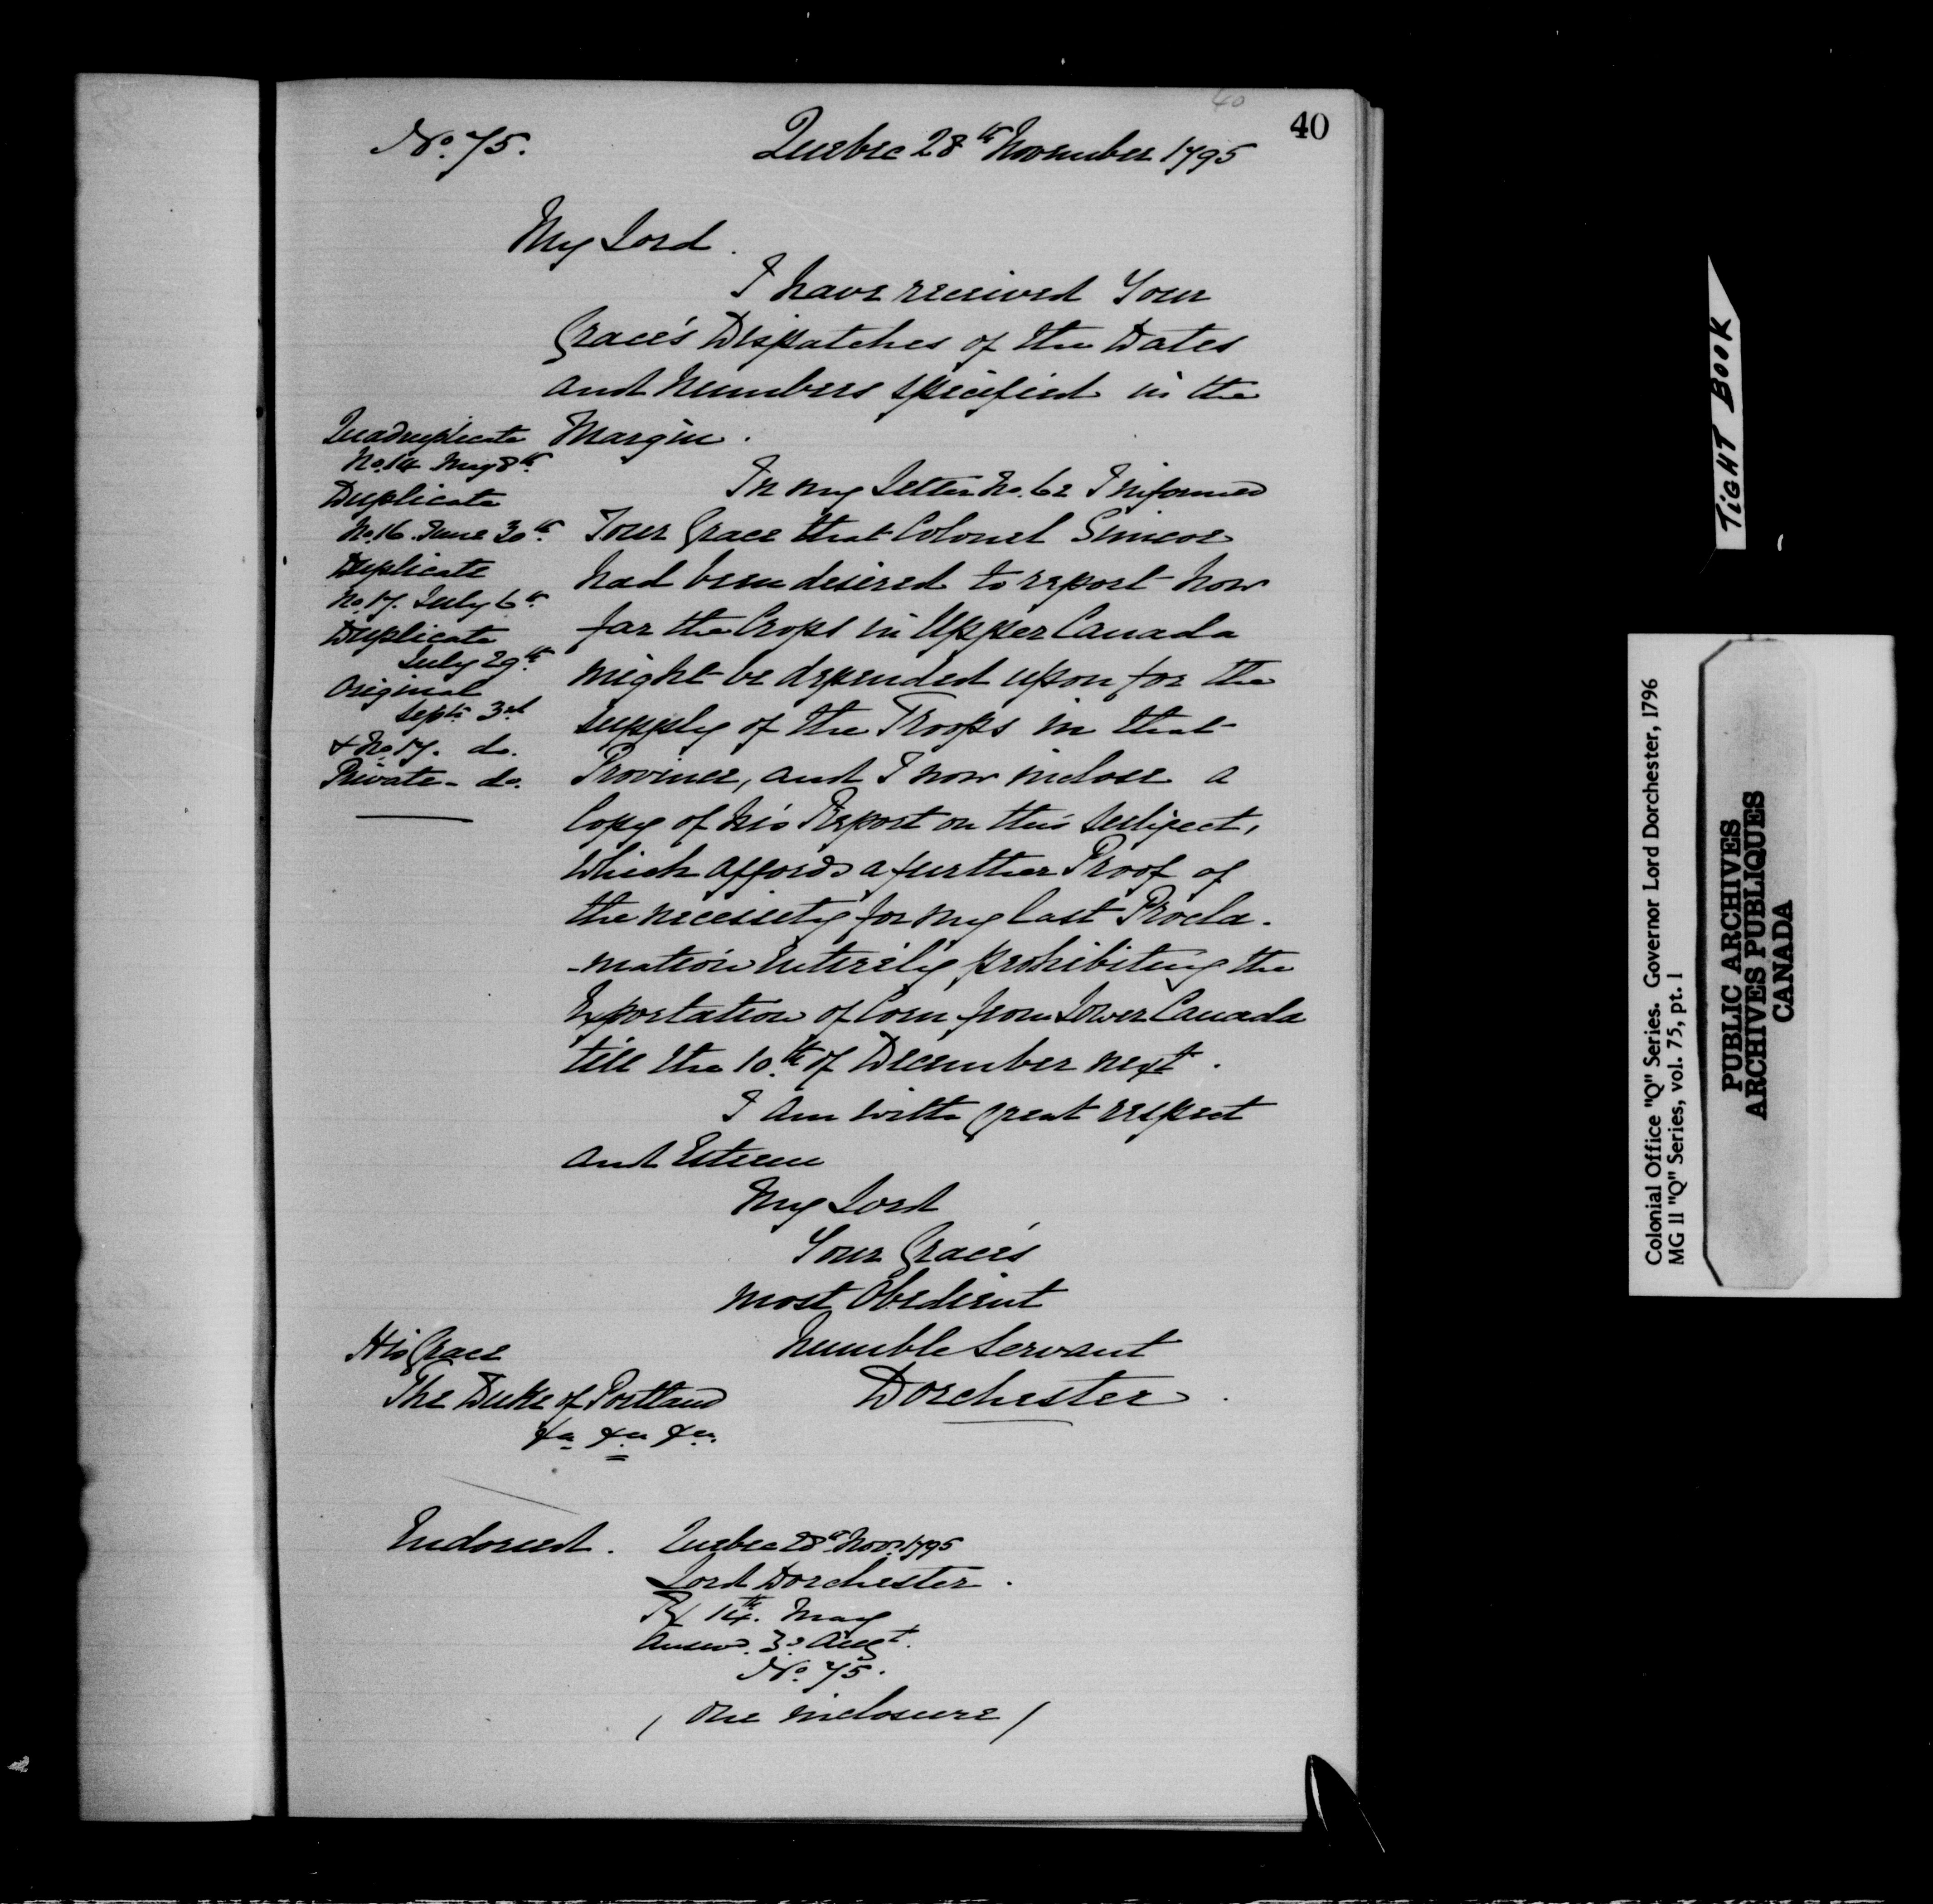 40
40
No. 75. Quebec 28th November 1795
My Lord.
I have received Your
Grace's Dispatches of the Dates
and Numbers specified in the
Margin.
Quadruplicate
No. 14 May 8th
Duplicate
No. 16. June 30th
Duplicate
No. 17. July 6th
Duplicate
July 29th
Original
Septr 3d
& No. 17. do.
Private - do.
In my Letter No. 62 I informed
Your Grace that Colonel Simcoe
had been desired to report how
far the Crops in Upper Canada
might be depended upon for the
supply of the Troops in that
Province, and I now inclose a
Copy of his Report on this subject,
which affords a further Proof of
the necessity for my last Procla-
-mation Entirely prohibiting the
Exportation of Corn from Lower Canada
till the 10th of December next.
I am with great respect
and Esteem
My Lord
Your Grace's
most Obedient
humble Servant
Dorchester.
His Grace
The Duke of Portland
&a &a &a
Endorsed. Quebec 28th Novr 1795
Lord Dorchester.
Rx 14th. May
Answd. 3d Augt.
No. 75.
(One inclosure)
TIGHT BOOK
Colonial Office "Q" Series. Governor Lord Dorchester, 1796
MG 11 "Q" Series, vol. 75, pt. 1
PUBLIC ARCHIVES
ARCHIVES PUBLIQUES
CANADA